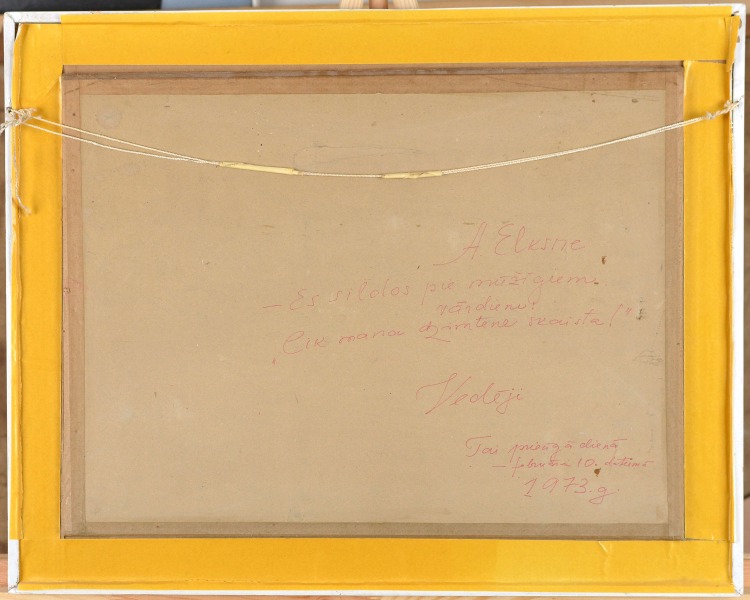 A. Elksne
– Es sildos pie mūžīgiem
vārdiem:
„Cik mana dzimtene skaista!"
Vedēji
Tai priecīgā dienā
– februāra 10. datumā
1973. g.